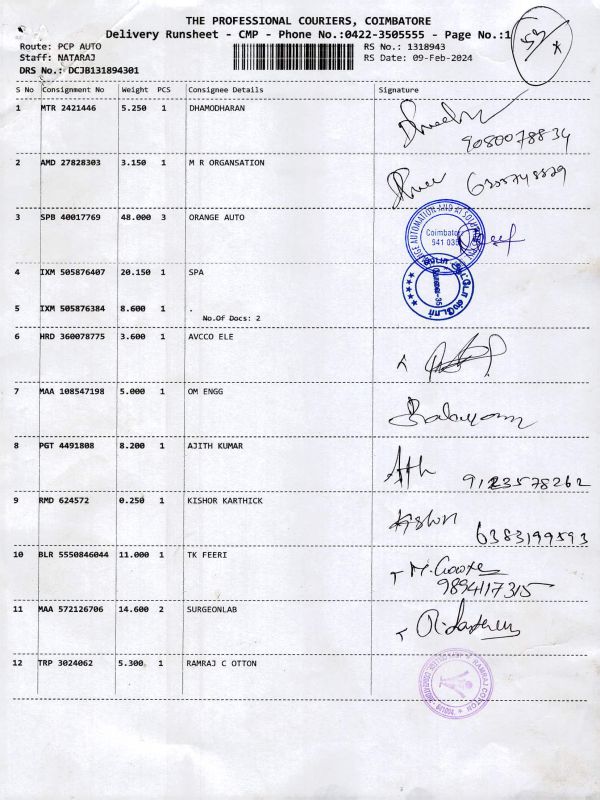 THE PROFESSIONAL COURIERS, COIMBATORE
Delivery Runsheet - CMP - Phone No.:0422-3505555 - Page No.:1
Route: PCP AUTO
RS No.: 1318943
Staff: NATARAJ
RS Date: 09-Feb-2024
DRS No.: DCJB131894301
S No Consignment No Weight PCS Consignee Details Signature
1 MTR 2421446 5.250 1 DHAMODHARAN
9080078834
2 AMD 27828303 3.150 1 M R ORGANSATION
3 SPB 40017769 48.000 3 ORANGE AUTO
Coimbatore
641 035
4 IXM 505876407 20.150 1 SPA
5 IXM 505876384 8.600 1 .
No.Of Docs: 2
6 HRD 360078775 3.600 1 AVCCO ELE
7 MAA 108547198 5.000 1 OM ENGG
8 PGT 4491808 8.200 1 AJITH KUMAR
9123578262
9 RMD 624572 0.250 1 KISHOR KARTHICK
6383199593
10 BLR 5550846044 11.000 1 TK FEERI
9894117315
11 MAA 572126706 14.600 2 SURGEONLAB
12 TRP 3024062 5.300 1 RAMRAJ C OTTON
RAMRAJ COTTON